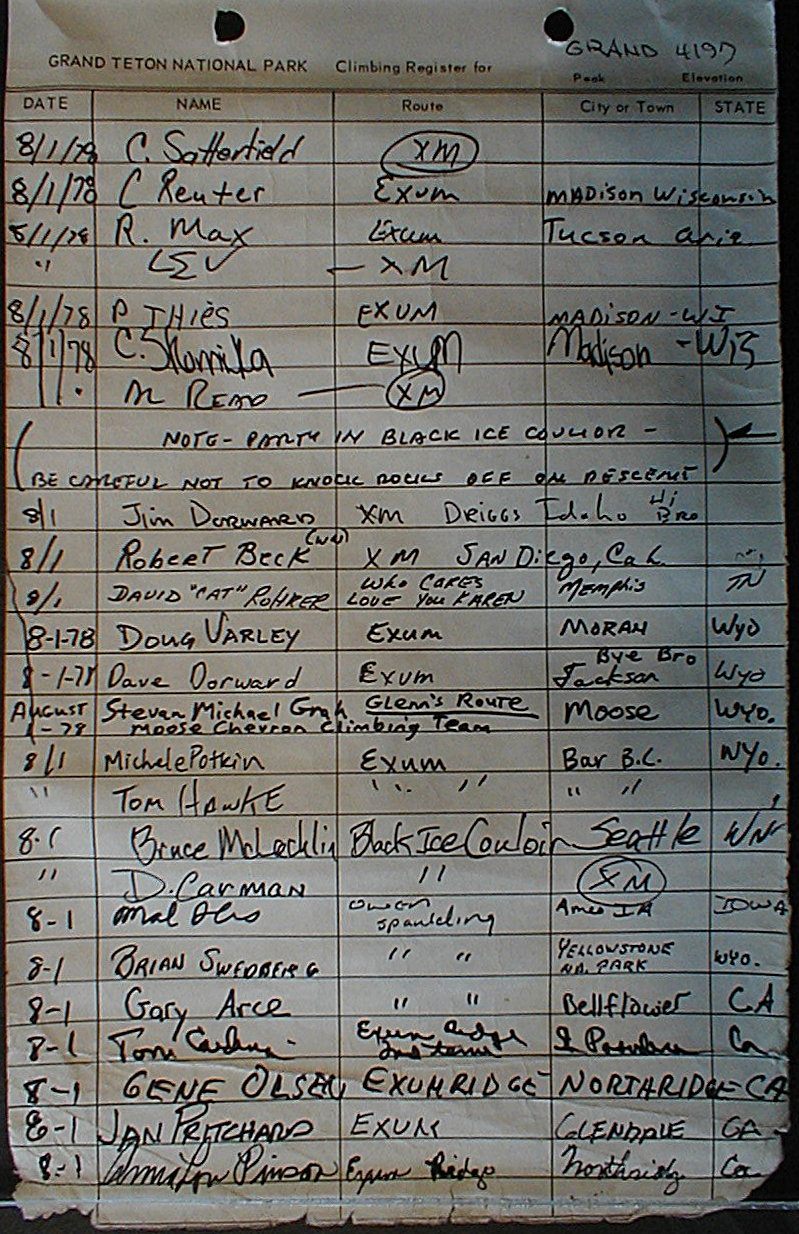 GRAND 4197
GRAND TETON NATIONAL PARK Climbing Register for
Peak Elevation
DATE NAME Route City or Town STATE
8/1/78 C. Satterfield XM
8/1/78 C Reuter Exum MADISON Wisconsin
8/1/78 R. Max Exum Tucson Ariz
" LEV - XM
8/1/78 P THIES EXUM MADISON - WI
8/1/78 C. EXUM Madison - WIS
" AL READ XM
(NOTE - PARTY IN BLACK ICE COULIOR -
BE CAREFUL NOT TO KNOCK ROCKS OFF ON DESCENT)
8/1 Jim DORWARD XM DRIGGS Idaho Hi BRO
8/1 ROBERT BECK XM SAN Diego, Cal.
8/1 DAVID "CAT" ROHRER WHO CARES LOVE YOU KAREN MEMPHIS TN
8-1-78 DOUG VARLEY EXUM MORAN WYO
Bye Bro
8-1-78 Dave Dorward Exum Jackson Wyo
AUGUST Steven Michael Glenn's Route Moose Wyo.
1-78 Moose Chevron Climbing Team
8/1 Michele Potkin Exum Bar B.C. WYO.
" TOM HAWKE " " " "
8-1 Bruce McLecklin Black Ice Couloir Seattle WN
" D. CARMAN " XM
8-1 owen spaulding Ames IA IOWA
8-1 BRIAN SWEDBERG " " YELLOWSTONE NA. PARK WYO.
8-1 Gary Arce " " Bellflower CA
8-1 Tom Exum Ridge Ca
8-1 GENE OLSEN EXUM RIDGE NORTHRIDGE CA
8-1 JAN PRITCHARD EXUM GLENDALE CA
8-1 Pinson Exum Ridge Northridge Ca